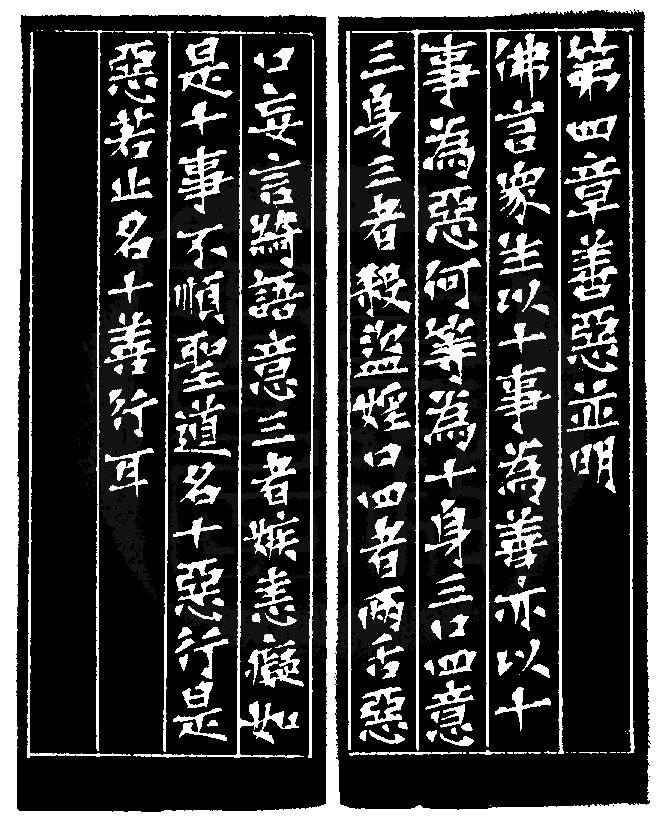 第四章善惡並明
佛言衆生以十事為善亦以十
事為惡何等為十身三口四意
三身三者殺盜婬口四者兩舌惡
口妄言綺語意三者嫉恚癡如
是十事不順聖道名十惡行是
惡若止名十善行耳